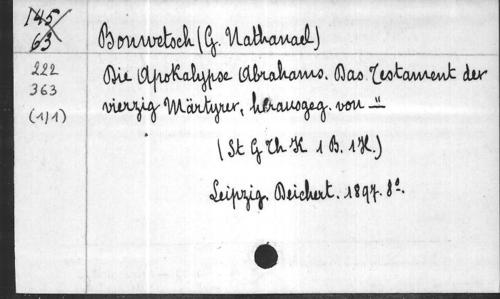 145
63
Bonwetsch (G. Nathanael)
222
Die Apokalypse Abrahams. Das Testament der
363
vierzig Märtyrer, herausgeg. von –"–
(1/1)
(St G Th K 1 B. 1 H.)
Leipzig. Deichert. 1897. 8°.